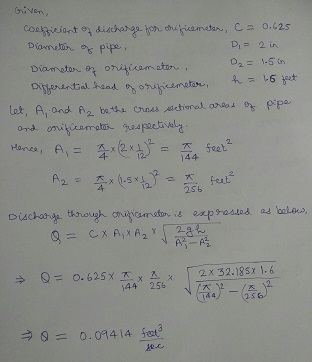 Given,
Coefficient of discharge for orificemeter, C = 0.625
Diameter of pipe, D₁ = 2 in
Diameter of orificemeter, D₂ = 1.5 in
Differential head of orificemeter, h = 1.6 feet
Let, A₁ and A₂ be the cross sectional areas of pipe
and orificemeter respectively.
Hence, A₁ = π/4 × (2 × 1/12)² = π/144 feet²
A₂ = π/4 × (1.5 × 1/12)² = π/256 feet²
Discharge through orificemeter is expressed as below,
Q = C × A₁ × A₂ × √(2gh / (A₁² − A₂²))
⇒ Q = 0.625 × π/144 × π/256 × √(2 × 32.185 × 1.6 / ((π/144)² − (π/256)²))
⇒ Q = 0.09414 feet³/sec